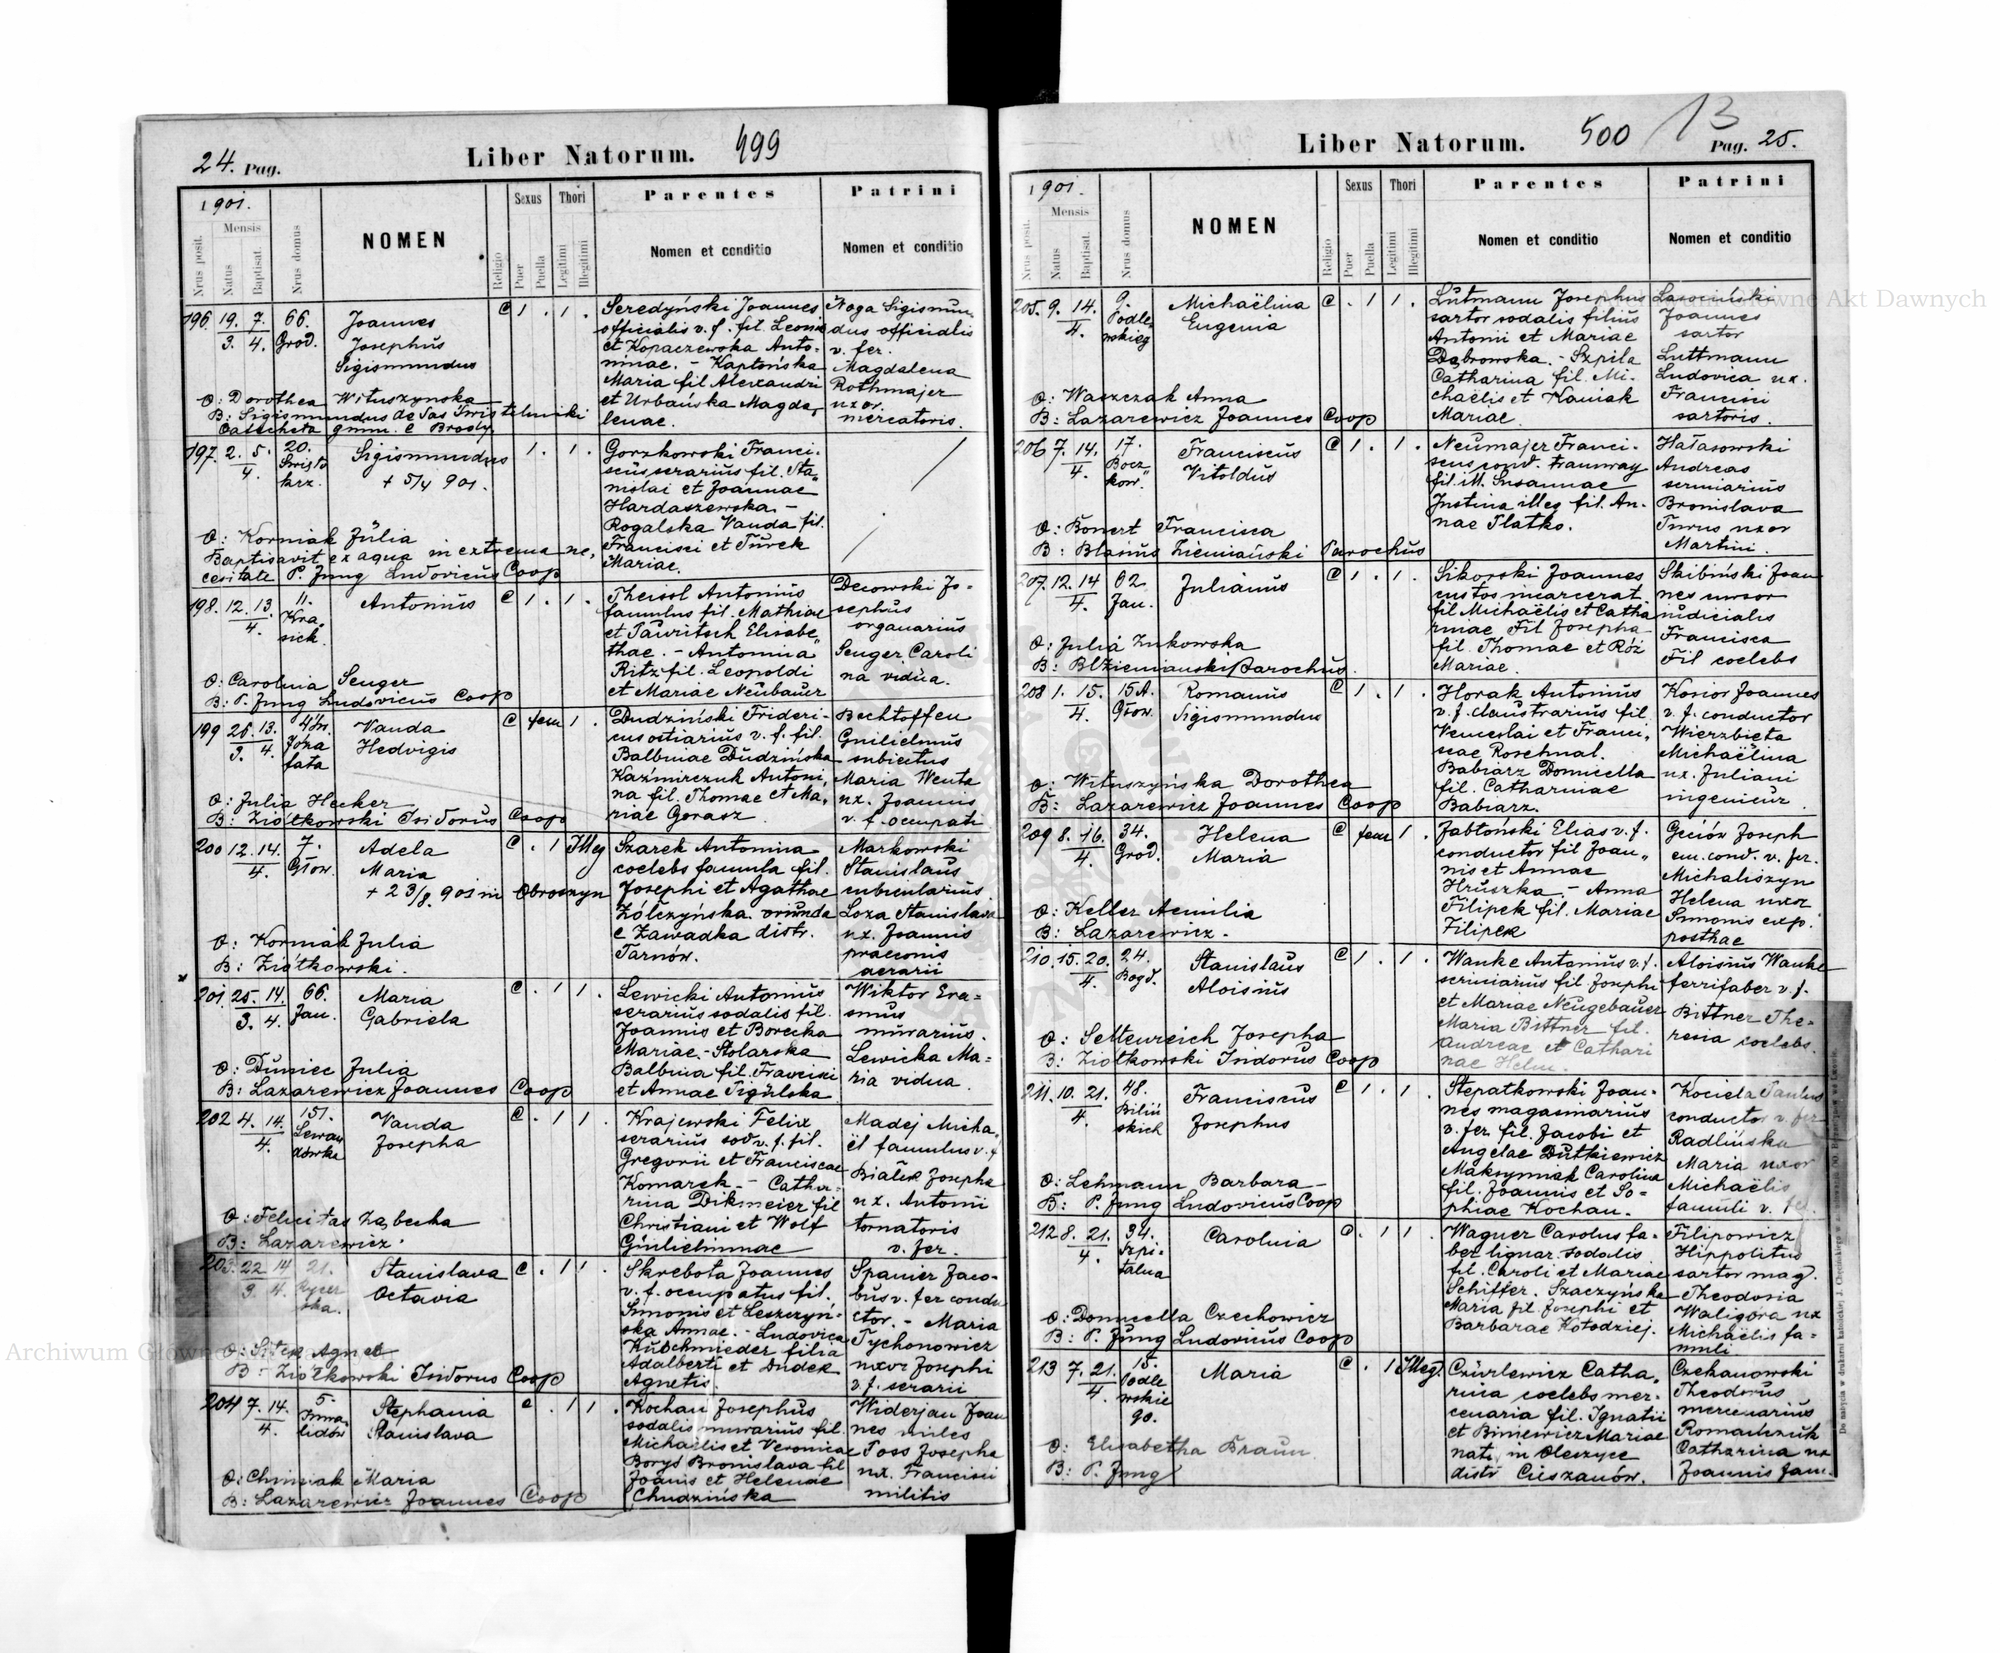 24. Pag.
Liber Natorum. 499
1901.
Nrus posit.
Mensis
Natus
Baptisat.
Nrus domus
NOMEN
Religio
Sexus
Puer
Puella
Thori
Legitimi
Illegitimi
Parentes
Nomen et conditio
Patrini
Nomen et conditio
196. 19. 7. 66.
3. 4. Grod.
Joannes
Josephus
Sigismundus
C 1 . 1 .
Seredyński Joannes
officialis v. f. fil. Leonis
et Kopaczewska Anto-
ninae. - Kaptońska
Maria fil Alexandri
et Urbańska Magda,
lenae.
Noga Sigismun
dus officialis
v. fer.
Magdalena
Rothmajer
uxor
mercatoris.
O: Dorothea Wituszynska
B: Sigismundus de
Catecheta gymn. e Brody.
197. 2. 5. 20.
4. Swięto
krz.
Sigismundus
+ 5/4 901.
1 . 1 .
Gorzkowski Franci-
scus serarius fil. Sta„
nislai et Joannae
Hardaszewska. -
Rogalska Vanda fil.
Francisci et Turek
Mariae.
O: Korniak Julia
Baptisavit ex aqua in extrema ne,
cesitate P. Jung Ludovicus Coop
198. 12. 13. 11.
4. Kra,
sick.
Antonius
C 1 . 1 .
Theissl Antonius
famulus fil. Mathiae
et Tauritsch Elisabe„
thae. - Antonina
Ritz fil. Leopoldi
et Mariae Neubauer
Decowski Jo-
sephus
organarius
Senger Caroli
na vidua.
O: Carolina Senger
B: P. Jung Ludovicus Coop
199 25. 13.
3. 4. Joza
fata
Vanda
Hedvigis
C fem 1 .
Dudziński Frideri-
cus ostiarius v. f. fil.
Balbinae Dudzińska
Kazmirczuk Antoni,
na fil. Thomae et Ma,
riae Gorasz
Bechtoffen
Guilielmus
Maria Wentz
ux. Joannis
v. f. occupati
O: Julia Hecker
B: Ziółkowski Isidorus Coop
200 12. 14. 7.
4. Głow.
Adela
Maria
+ 23/8. 901 in Obroszyn
C . 1 Illeg
Szarek Antonina
coelebs famula fil.
Josephi et Agathae
Żółczyńska. oriunda
e Zawadka distr.
Tarnów.
Markowski
Stanislaus
cubicularius
Loza Stanislava
ux. Joannis
praeconis
aerarii
O: Korniak Julia
B: Ziółkowski.
201. 25. 14. 66.
3. 4. Jan.
Maria
Gabriela
C . 1 1 .
Lewicki Antonius
serarius sodalis fil.
Joannis et Borecka
Mariae. - Stolarska
Balbina fil. Francisci
et Annae Pigulska
Wiktor Era=
smus
murarius.
Lewicka Ma=
ria vidua.
O: Duniec Julia
B: Lazarewicz Joannes Coop
202 4. 14. 151.
4. Lewan
dówka
Vanda
Josepha
C . 1 1 .
Krajewski Felix
serarius sod v. f. fil.
Gregorii et Franciscae
Komarek. - Catha-
rina Dikmeier fil
Christiani et Wolf
Guilielminae
Madej Micha„
ël famulus v. f
Białek Josepha
ux. Antonii
tornatoris
v. fer.
O: Felicitas Ząbecka
B: Lazarewicz.
203. 22 14 21.
3. 4. Rycer
ska.
Stanislava
Octavia
C . 1 1 .
Skrebota Joannes
v. f. occupatus fil.
Simonis et Leszczyń-
ska Annae. - Ludovica
Kubschmieder filia
Adalberti et Dudek
Agnetis.
Spanier Jaco-
bus v. fer condu
ctor. - Maria
Tychonowicz
uxor Josephi
v. f. serarii
O: Sitek Agneb
B: Ziółkowski Isidorus Coop
204 7. 14. 5.
4. Inwa„
lidów
Stephania
Stanislava
C . 1 1 .
Kochan Josephus
sodalis murarius fil.
Michaëlis et Veronicae
Borys Bronislava fil
Joanis et Helenae
Chudzińska
Widerjan Joan
nes miles
Poss Josepha
ux. Francisci
militis
O: Chmiak Maria
B: Lazarewicz Joannes Coop
Liber Natorum. 500 13
Pag. 25.
1901.
Nrus posit.
Mensis
Natus
Baptisat.
Nrus domus
NOMEN
Religio
Sexus
Puer
Puella
Thori
Legitimi
Illegitimi
Parentes
Nomen et conditio
Patrini
Nomen et conditio
205. 9. 14. 9.
4. Podle„
wskieg
Michaëlina
Eugenia
C . 1 1 .
Lutmann Josephus
sartor sodalis filius
Antonii et Mariae
Dąbrowska. - Szpila
Catharina fil. Mi-
chaëlis et Kaniak
Mariae.
Lasociński
Joannes
sartor
Luttmann
Ludovica ux.
Francisci
sartoris.
O: Waszczak Anna
B: Lazarewicz Joannes Coop
206 7. 14. 17.
4. Bocz„
kow.
Franciscus
Vitoldus
C 1 . 1 .
Neumajer Franci-
scus cond. tramway
fil. ill. Susannae
Justina illeg fil. An-
nae Platko.
Hałasowski
Andreas
scriniarius
Bronislava
Turus uxor
Martini.
O: Bonert Francisca
B: Blasius Ziemiański Parochus
207. 12. 14 02
4. Jan.
Julianus
C 1 . 1 .
Sikorski Joannes
custos incarcerat.
fil Michaëlis et Catha
rinae Fil Josepha
fil. Thomae et Róż
Mariae.
Skibiński Joan
nes cursor
iudicialis
Francisca
Fil coelebs
O: Julia Zukowska
B: Bl Ziemianski Parochus.
208 1. 15. 15A.
4. Głow.
Romanus
Sigismundus
C 1 . 1 .
Horak Antonius
v. f. claustrarius fil.
Venceslai et Franci,
scae Roschnal.
Babiarz Domicella
fil. Catharinae
Babiarz.
Kosior Joannes
v. f. conductor
Wierzbięta
Michaëlina
ux. Juliani
ingenieur.
O: Wituszyńska Dorothea
B: Lazarewicz Joannes Coop
209 8. 16. 34.
4. Grod.
Helena
Maria
C fem 1 .
Jabłoński Elias v. f.
conductor fil Joan„
nis et Annae
Hruszka. - Anna
Filipek fil. Mariae
Filipek
Geciów Joseph
em. cond. v. fer.
Michaliszyn
Helena uxor
Simonis exp.
posthae
O: Keller Aemilia
B: Lazarewicz.
210. 15. 20. 24.
4. Bogd.
Stanislaus
Aloisius
C 1 . 1 .
Wanke Antonius v. f.
scriniarius fil Josephi
et Mariae Neugebauer
Maria Bittner fil.
Andreae et Cathari
nae Helm.
Aloisius Wanke
ferrifaber v. f.
Bittner The-
resia coelebs.
O: Seltenreich Josepha
B: Ziołkowski Isidorus Coop
211. 10. 21. 48.
4. Biliń
skich
Franciscus
Josephus
C 1 . 1 .
Stepatkowski Joan-
nes magasinarius
v. fer. fil. Jacobi et
Angelae Dutkiewicz
Maksymiak Carolina
fil. Joannis et So=
phiae Kochan.
Kociela Paulus
conductor v. fer
Radlińska
Maria uxor
Michaëlis
famuli v. fer.
O: Lehmann Barbara -
B: P. Jung Ludovicus Coop
212 8. 21. 34.
4 Szpi-
talna
Carolina
C . 1 1 .
Wagner Carolus fa-
ber lignar. sodalis
fil. Caroli et Mariae
Schiffer. Szaczyńska
Maria fil Josephi et
Barbarae Kołodziej.
Filipowicz
Hippolitus
sartor mag.
Theodosia
Waligóra ux
Michaëlis fa-
muli.
O: Domicella Czechowicz
B: P. Jung Ludovicus Coop
213 7. 21. 15.
4. Podle
wskie
go.
Maria
C . 1 Illeg.
Czurlewicz Catha,
rina coelebs mer-
cenaria fil. Ignatii
et Biniewicz Mariae
nat. in Oleszyce
distr Cieszanów.
Czekanowski
Theodorus
mercenarius
Romańczuk
Catharina ux
Joannis fam.
O: Elisabetha Braun
B: P. Jung
Archiwum Główne Akt Dawnych